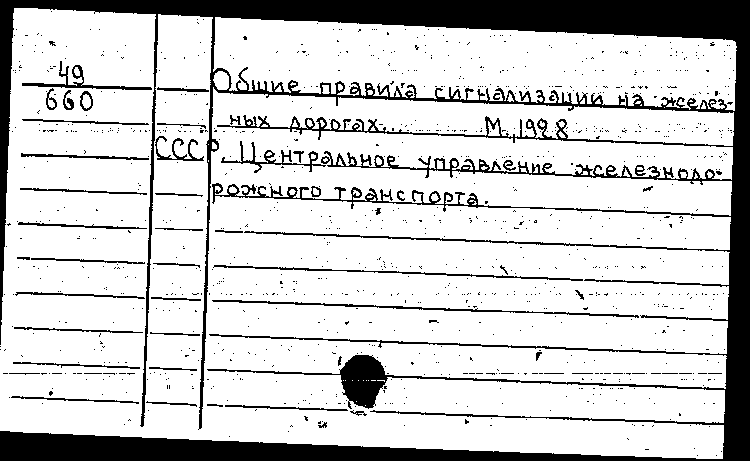 49
660
Общие правила сигнализации на желез-
ных дорогах... М., 1928
СССР. Центральное управление железнодо-
рожного транспорта.